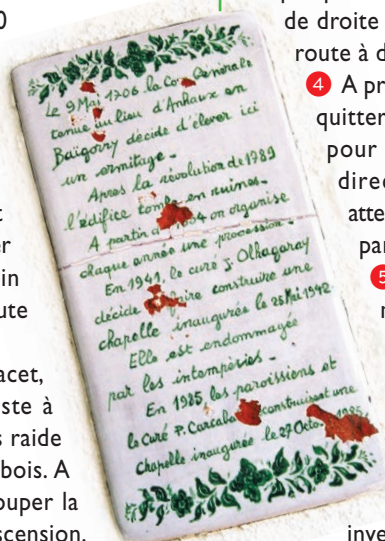 0
de droite
route à d
4 A pr
quitter
pour
direc
atte
par
5
t
er
in
ute
acet,
ste à
s raide
bois. A
ouper la
scension.
inve
Le 9 Mai 1706 la Cour Générale
tenue au lieu d'Anhaux en
Baïgorry décide d'élever ici
un ermitage.
Apres la révolution de 1789
l'édifice tombe en ruines.
A partir de on organise
chaque année une procession.
En 1941, le curé J. Olhagaray
décide de faire construire une
chapelle inaugurée le 25 Mai 1942.
Elle est endommagée
par les intempéries.
En 1985, les paroissiens et
le Curé P. Carcaba construisent une
Chapelle inaugurée le 27 Octo 1985.